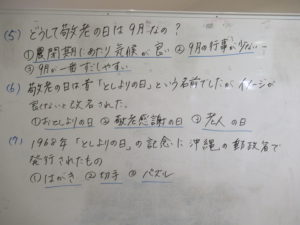 (5) どうして敬老の日は9月なの?
①農閑期にあたり気候が良い ②9月の行事が少ない
③9月が一番すごしやすい
(6) 敬老の日は昔「としよりの日」という名前でしたが、イメージが
良くないと改名された。
①おとしよりの日 ②敬老感謝の日 ③老人の日
(7) 1968年「としよりの日」の記念に沖縄の郵政省で
発行されたもの
①はがき ②切手 ③パズル